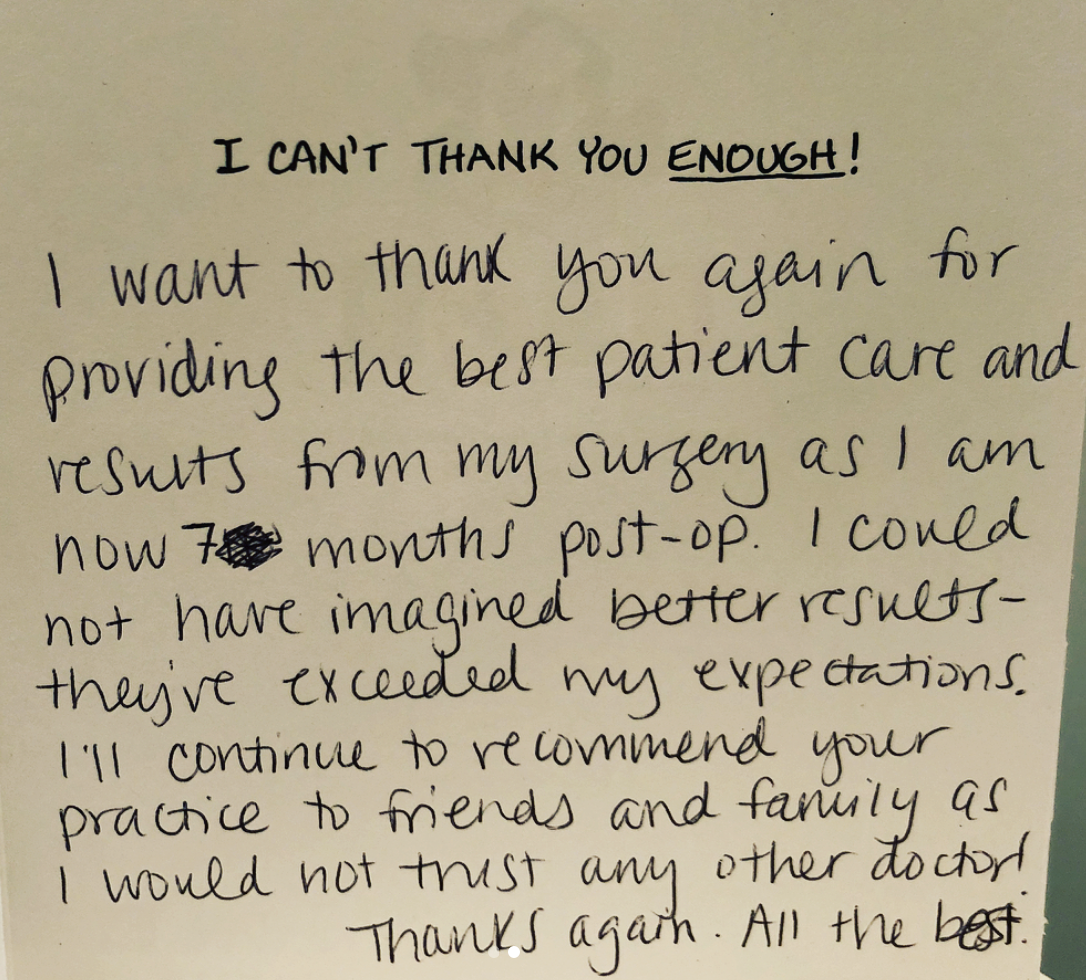 I CAN'T THANK YOU ENOUGH!
I want to thank you again for
providing the best patient care and
results from my surgery as I am
now 7 months post-op. I could
not have imagined better results-
they've exceeded my expectations.
I'll continue to recommend your
practice to friends and family as
I would not trust any other doctor!
Thanks again. All the best.